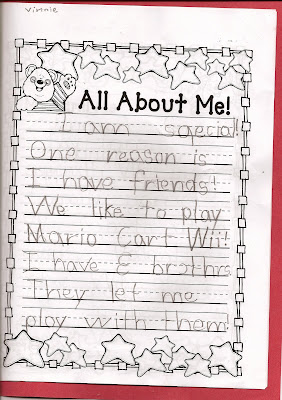 vinnie
All About Me!
I am special!
One reason is
I have friends!
We like to play
Mario Cart Wii!
I have brothrs
They let me
play with them.